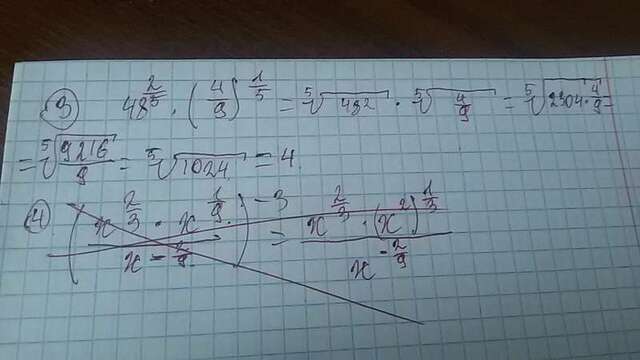 ③ 48^(2/5) · (4/9)^(1/5) = ⁵√(48²) · ⁵√(4/9) = ⁵√(2304 · 4/9) =
= ⁵√(9216/9) = ⁵√1024 = 4.
④ ((x^(2/3) · x^(1/9))/(x^(-2/9)))^(-3) = (x^(2/3) · (x²)^(1/3))/(x^(-2/9))